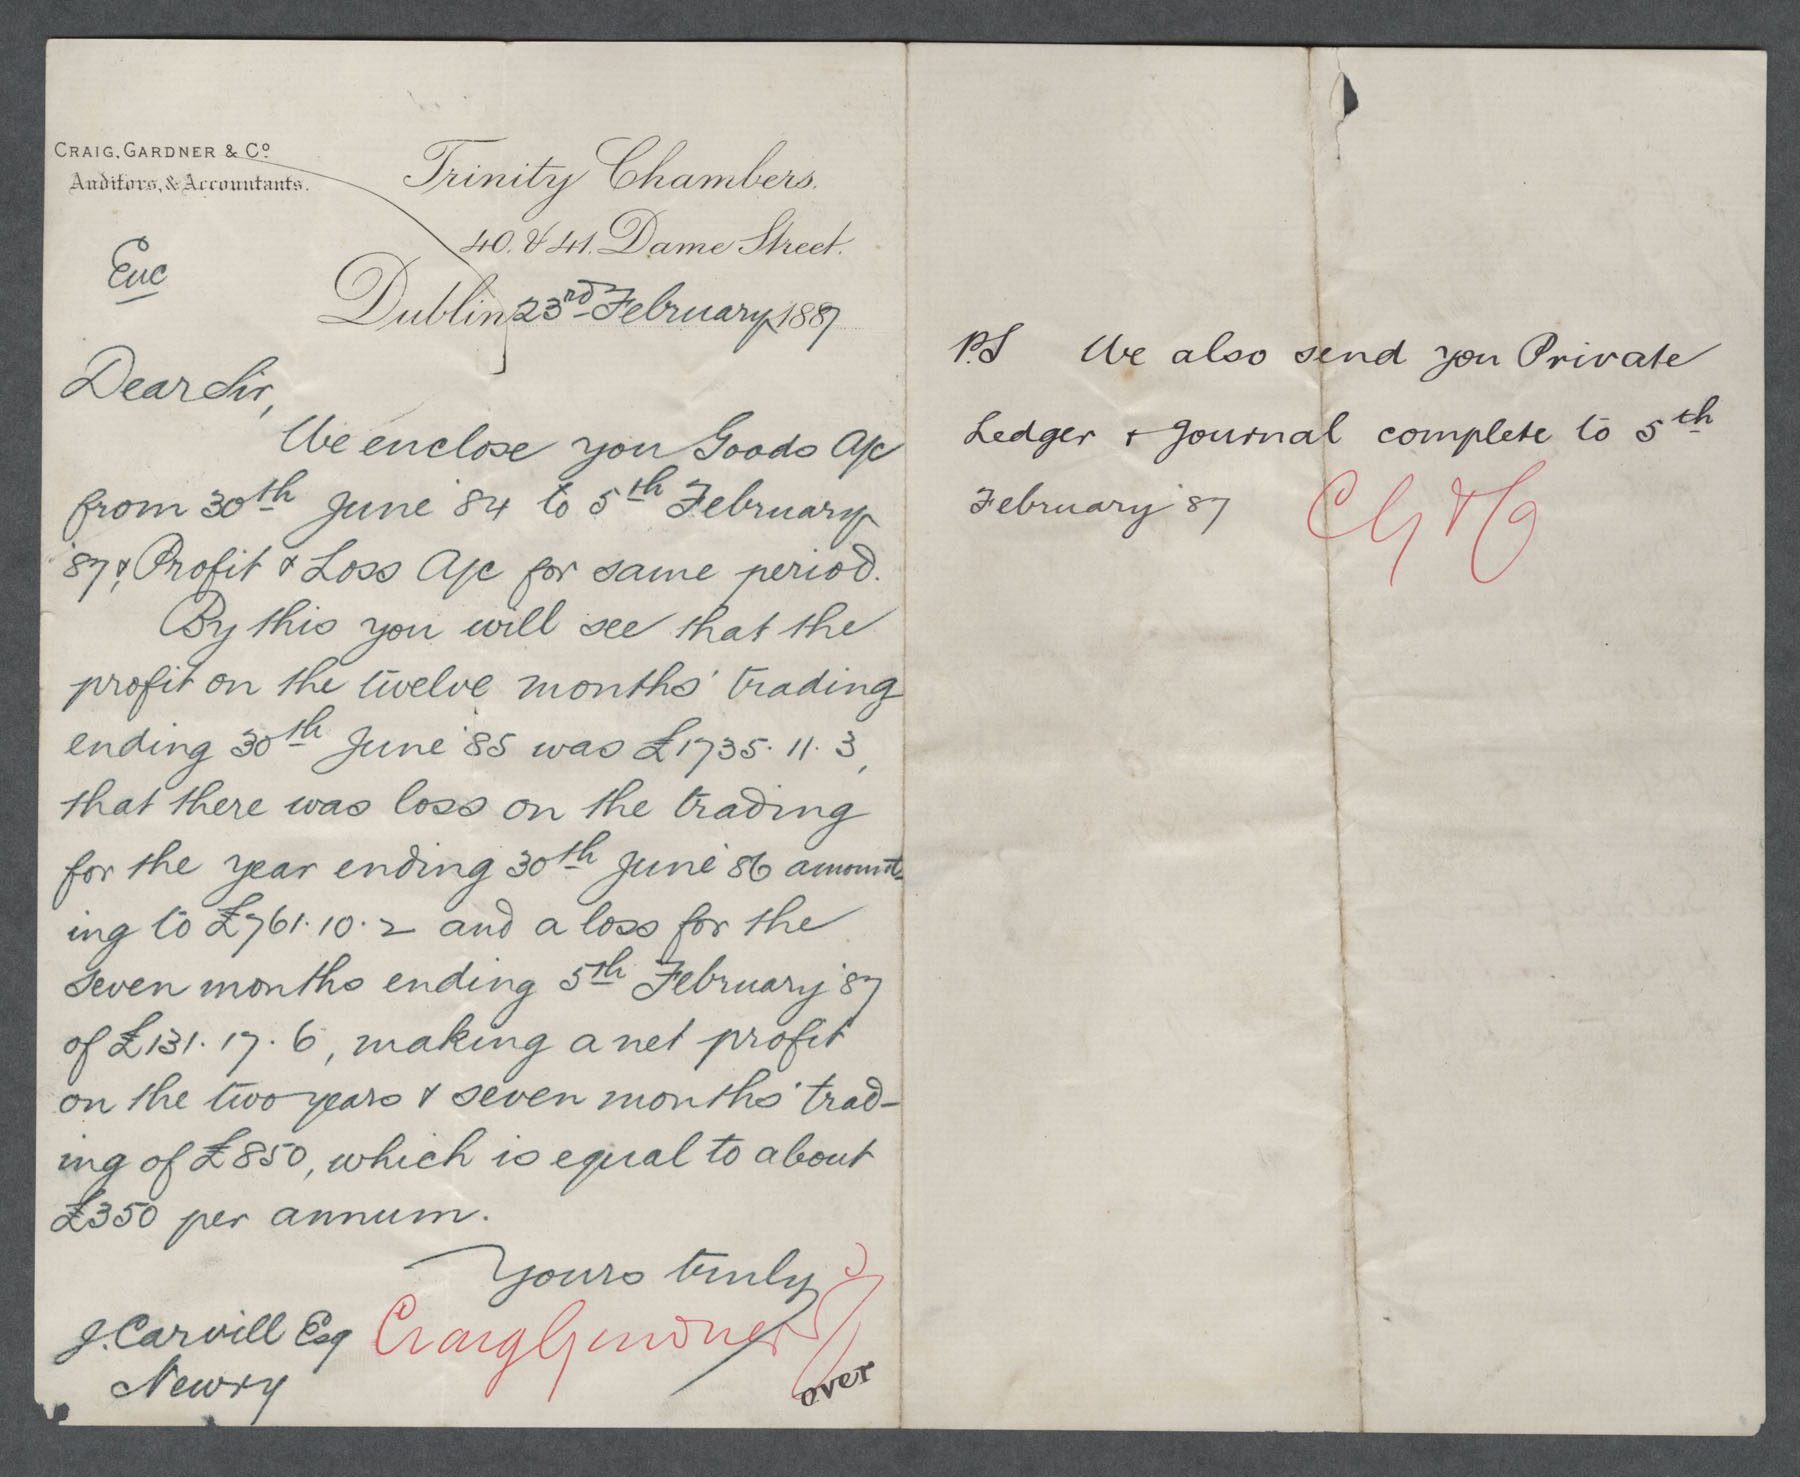 CRAIG, GARDNER & Co.
Auditors, & Accountants.
Trinity Chambers.
40. & 41. Dame Street.
Enc
Dublin 23rd February 1887
Dear Sir,
We enclose you Goods A/c
from 30th June '84 to 5th February
'87, & Profit & Loss A/c for same period.
By this you will see that the
profit on the twelve months' trading
ending 30th June '85 was £1735. 11. 3,
that there was loss on the trading
for the year ending 30th June '86 amount-
ing to £761. 10. 2 and a loss for the
seven months ending 5th February '87
of £131. 17. 6, making a net profit
on the two years & seven months' trad-
ing of £850, which is equal to about
£350 per annum.
Yours truly
Craig Gardner &Co
J. Carvill Esq
Newry
over
P.S We also send you Private
Ledger & Journal complete to 5th
February '87 CG & Co